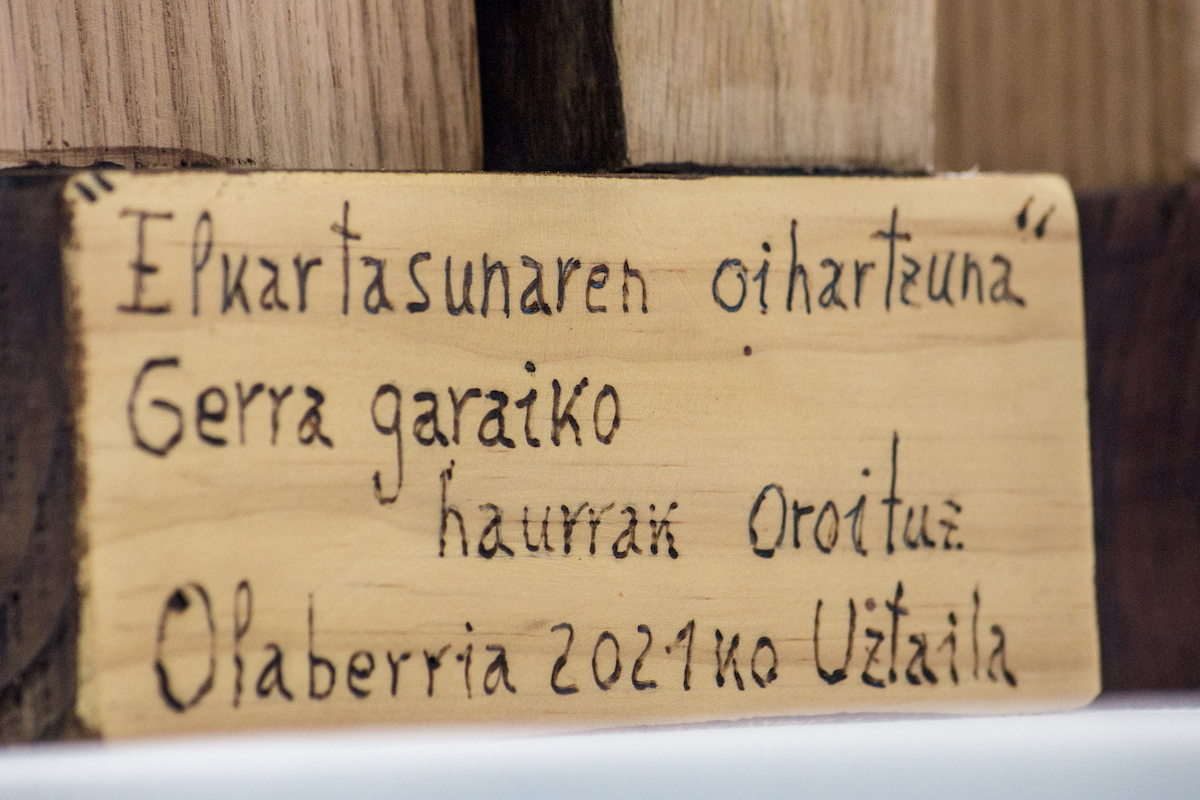 "Elkartasunaren oihartzuna"
Gerra garaiko
haurrak Oroituz
Olaberria 2021ko Uztaila